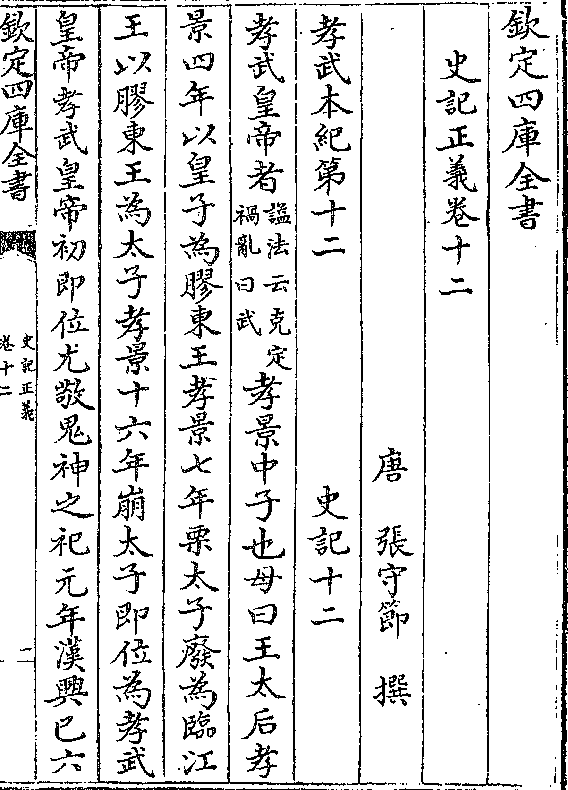 欽定四庫全書
史記正義卷十二
唐 張守節 撰
孝武本紀第十二 史記十二
孝武皇帝者謚法云克定禍亂曰武孝景中子也母曰王太后孝
景四年以皇子為膠東王孝景七年栗太子廢為臨江
王以膠東王為太子孝景十六年崩太子即位為孝武
皇帝孝武皇帝初即位尤敬鬼神之祀元年漢興已六
欽定四庫全書
史記正義
卷十二
二